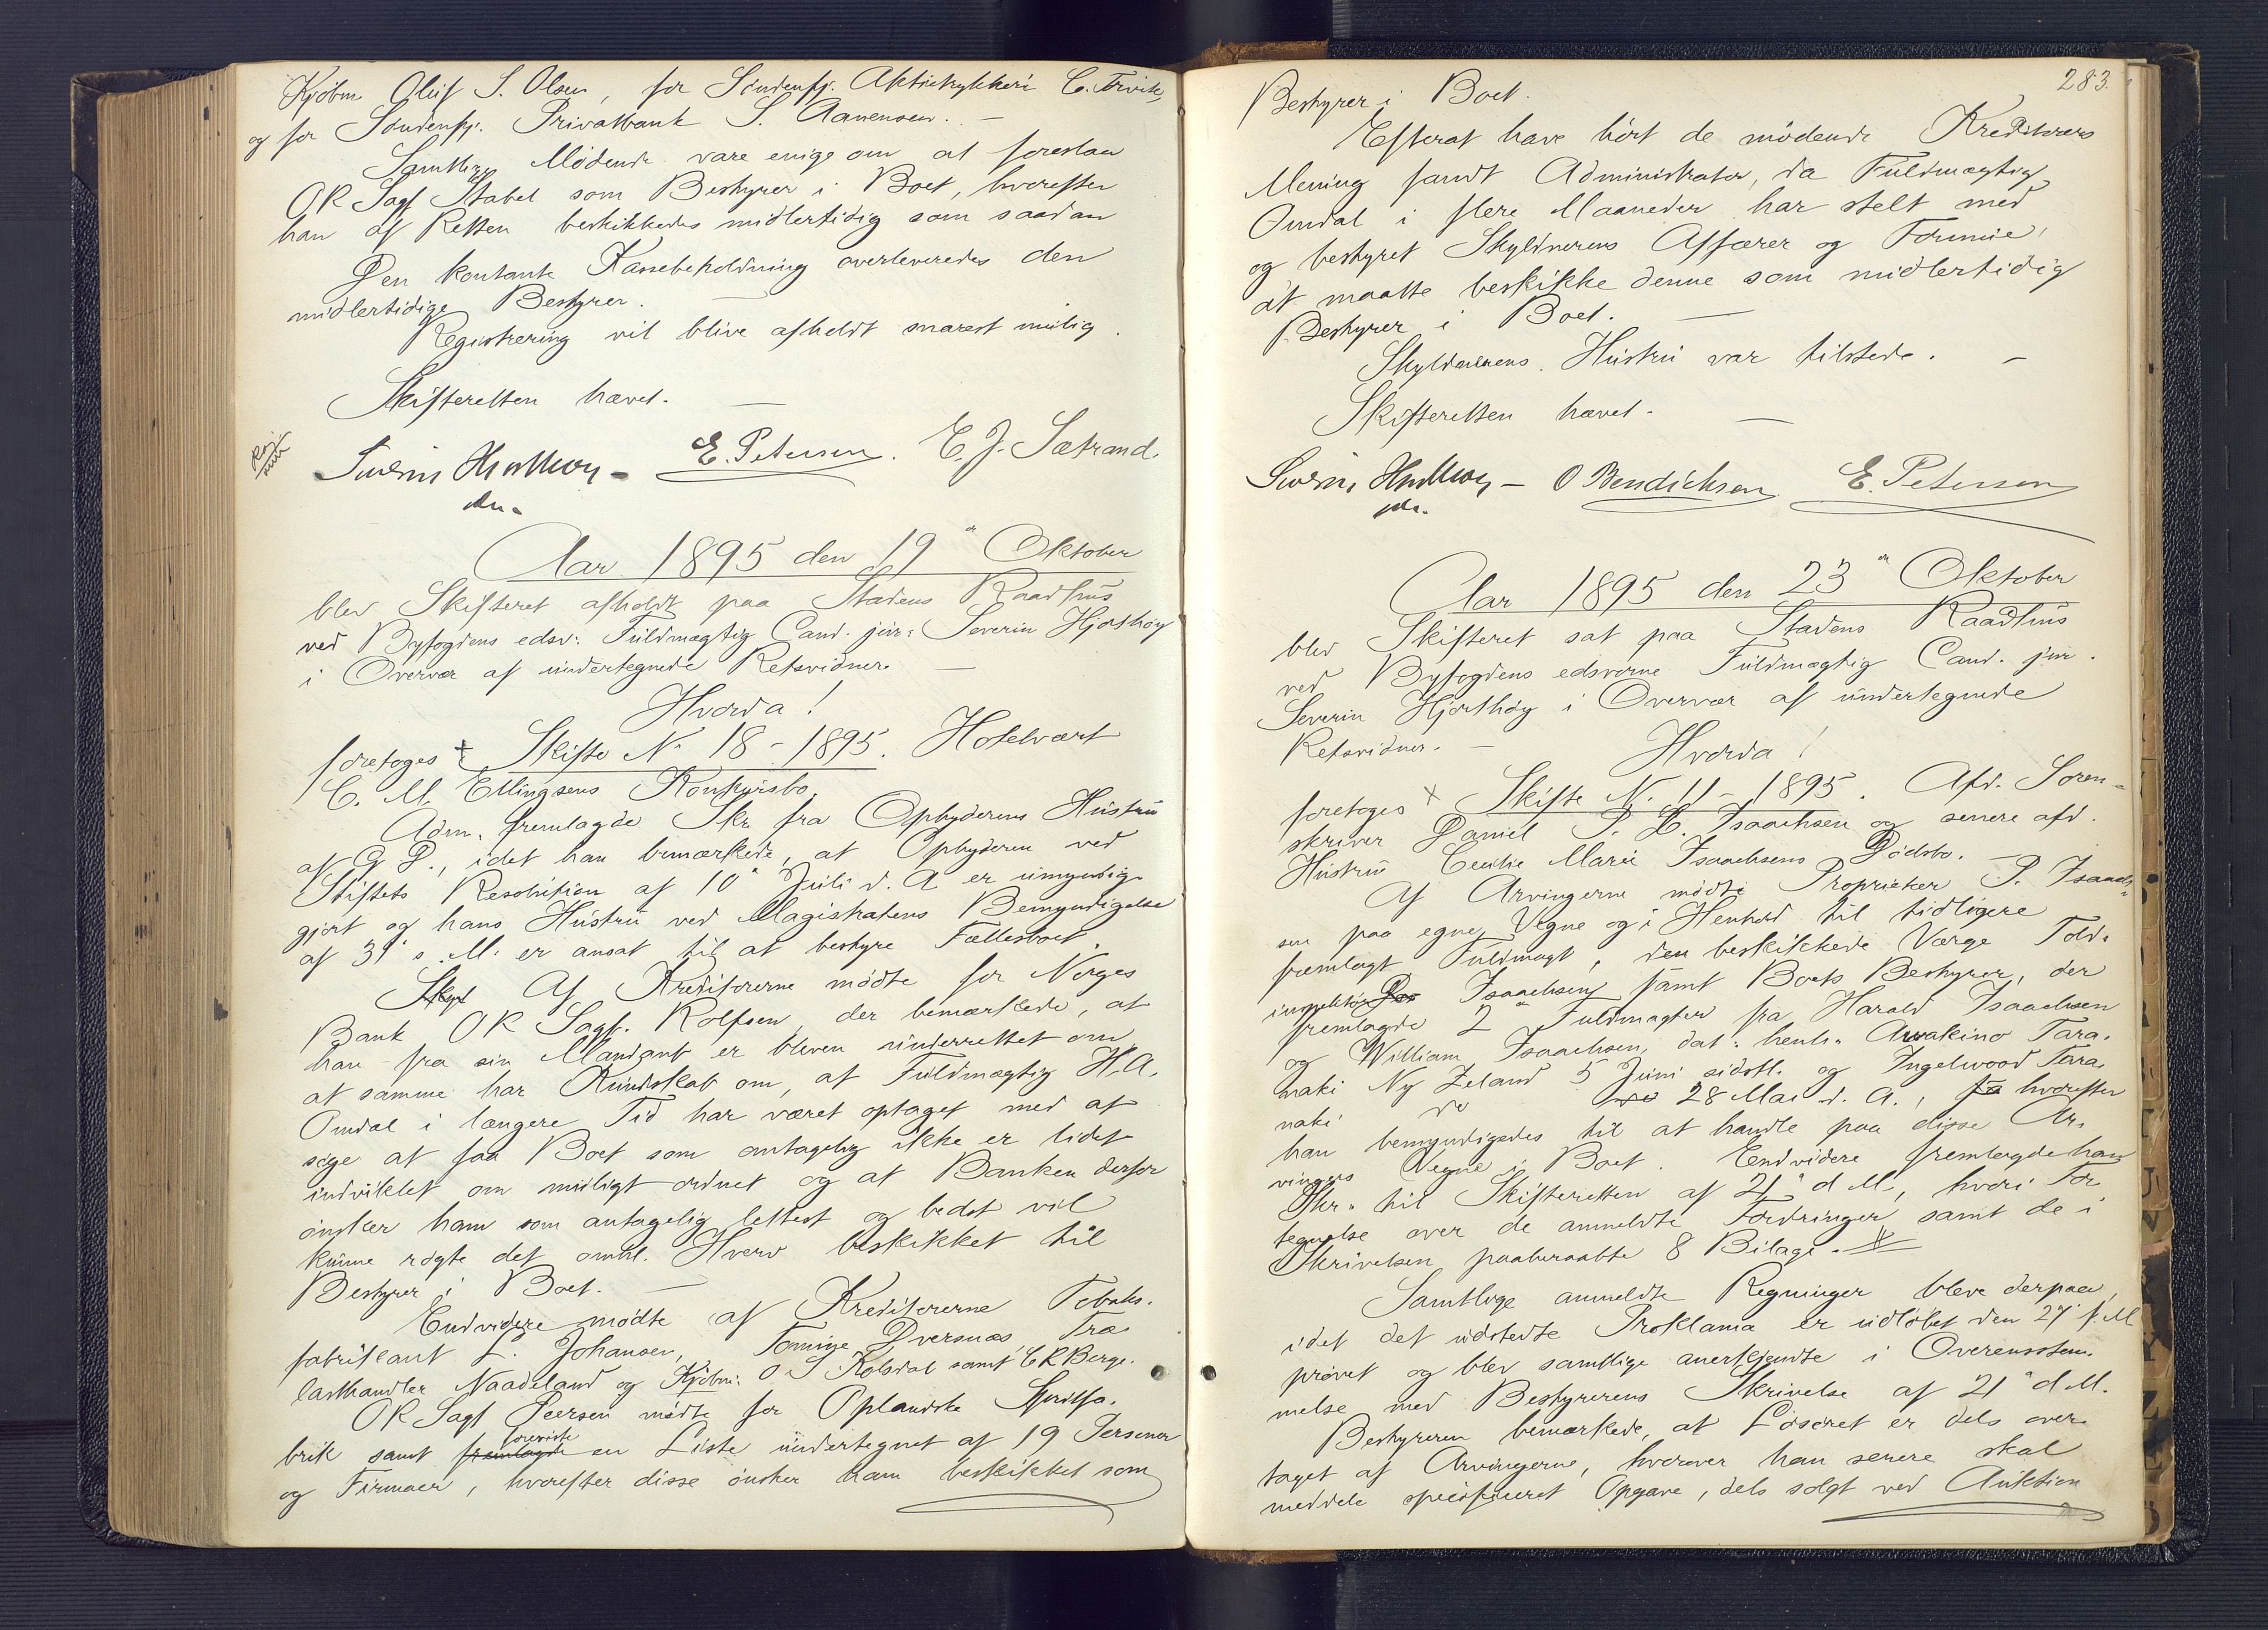 Kjöbm Oluf S. Olsen, for Söndenfj. Aktietrykkeri C. Tvwite,
og for Söndenfj. Privatbank S. Aanensen. —
Samtlige Mödende vare enige om at foreslaa
OR Sagf Stabel som Bestyrer i Boet, hvorefter
han af Retten beskikkedes midlertidig som saadan
Den kontante Kassebeholdning overleveredes den
midlertidige Bestyrer. —
Registrering vil blive afholdt snarest mulig.
Skifteretten hævet. —
Severin Hjorthøy — E. Petersen. E. J. Sætrand.
Aar 1895 den 19de Oktober
blev Skifteret afholdt paa Stadens Raadhus
ved Byfogdens edsv: Fuldmægtig Cand. jur: Severin Hjorthöy
i Overvær af undertegnede Retsvidner. —
Hvorda!
foretoges + Skifte No 18 - 1895. Hotelvært
C. M. Ellingsens Konkursbo.
Adm. fremlagde Skr fra Opbyderens Hustru
af G D., idet han bemærkede, at Opbyderen ved
Stiftets Resolution af 10de Juli d. A er umyndig
gjort og hans Hustru ved Magistratens Bemyndigelse
af 31 s. M. er ansat til at bestyre Fællesboet.
Skyl Af Kreditorerne mödte for Norges
Bank OR Sagf. Rolfsen, der bemærkede, at
han fra sin Mandant er bleven underrettet om
at samme har Kundskab om, at Fuldmægtig H. A.
Omdal i længere Tid har været optaget med at
söge at faa Boet som antagelig ikke er lidet
indviklet om muligt ordnet og at Banken derfor
önsker ham som antagelig lettest og bedst vil
kunne rögte det omhl. Hverv beskikket til
Bestyrer i Boet. —
Endvidere mödte af Kreditorerne Tobaks-
fabrikant L. Johansen, Tomine Dversnæs, Træ
lasthandler Naadeland og Kjöbm: O S Kolsdal samt C R Berge.
OR Sagf Peersen mödte for Oplandske Spritfa-
brik samt fremlagde foreviste en Liste undertegnet af 19 Personer
og Firmaer, hvorefter disse önsker ham beskikket som
283.
Bestyrer i Boet.
Efterat have hört de mödende Kreditorers
Mening fandt Administrator, da Fuldmægtig
Omdal i flere Maaneder har stelt med
og bestyret Skyldnerens Affærer og Formue,
at maatte beskikke denne som midlertidig
Bestyrer i Boet. —
Skyldnerens Hustru var tilstede. —
Skifteretten hævet. —
Severin Hjorthøy — O Bendichsen E. Petersen
Aar 1895 den 23de Oktober
blev Skifteret sat paa Stadens Raadhus
ved Byfogdens edsvorne Fuldmægtig Cand. jur.
Severin Hjorthöy i Overvær af undertegnede
Retsvidner. — Hvorda!
foretoges + Skifte No. 11 - 1895. Afd. Soren-
skriver Daniel P. L. Isaachsen og senere afd.
Hustru Cecilie Marie Isaachsens Dödsbo. —
Af Arvingerne mödte Proprietær P. Isaach-
sen paa egne Vegne og i Henhold til tidligere
fremlagt Fuldmagt, den beskikkede Værge Told-
inspektör Isaachsen samt Boets Bestyrer, der
fremlagde 2 Fuldmagter fra Harald Isaachsen
og William Isaachsen, dat: henh: Awakino Tara-
naki Ny Zeland 5 Juni sidstl. og Ingelwood Tara
naki do do 28 Mai d. A., fra hvorefter
han bemyndigedes til at handle paa disse Ar-
vingers Vegne i Boet. Endvidere fremlagde han
Skr. til Skifteretten af 21de d M., hvori For
tegnelse over de anmeldte Fordringer samt de i
Skrivelsen paaberaabte 8 Bilage. —
Samtlige anmeldte Regninger bleve derpaa,
idet det udstedte Proklama er udlöbet den 27 f. M
prövet og blev samtlige anerkjendte i Overensstem-
melse med Bestyrerens Skrivelse af 21de d M.
Bestyreren bemærkede, at Lösöret er dels over
taget af Arvingerne, hvorover han senere skal
meddele specificeret Opgave, dels solgt ved Auktion